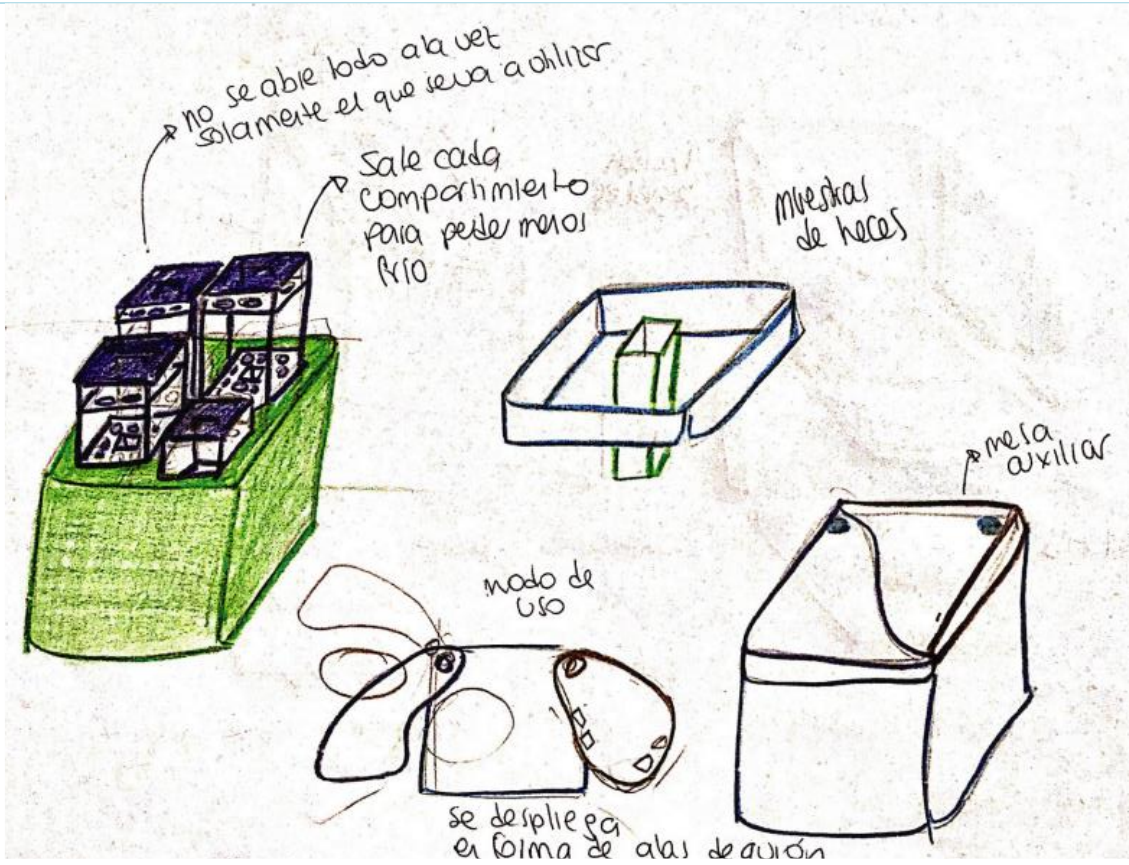 no se abre todo a la vez
solamente el que se va a utilizar
Sale cada
compartimiento
para perder menos
frío
muestras
de heces
mesa
auxiliar
modo de
uso
se despliega
en forma de alas de avión